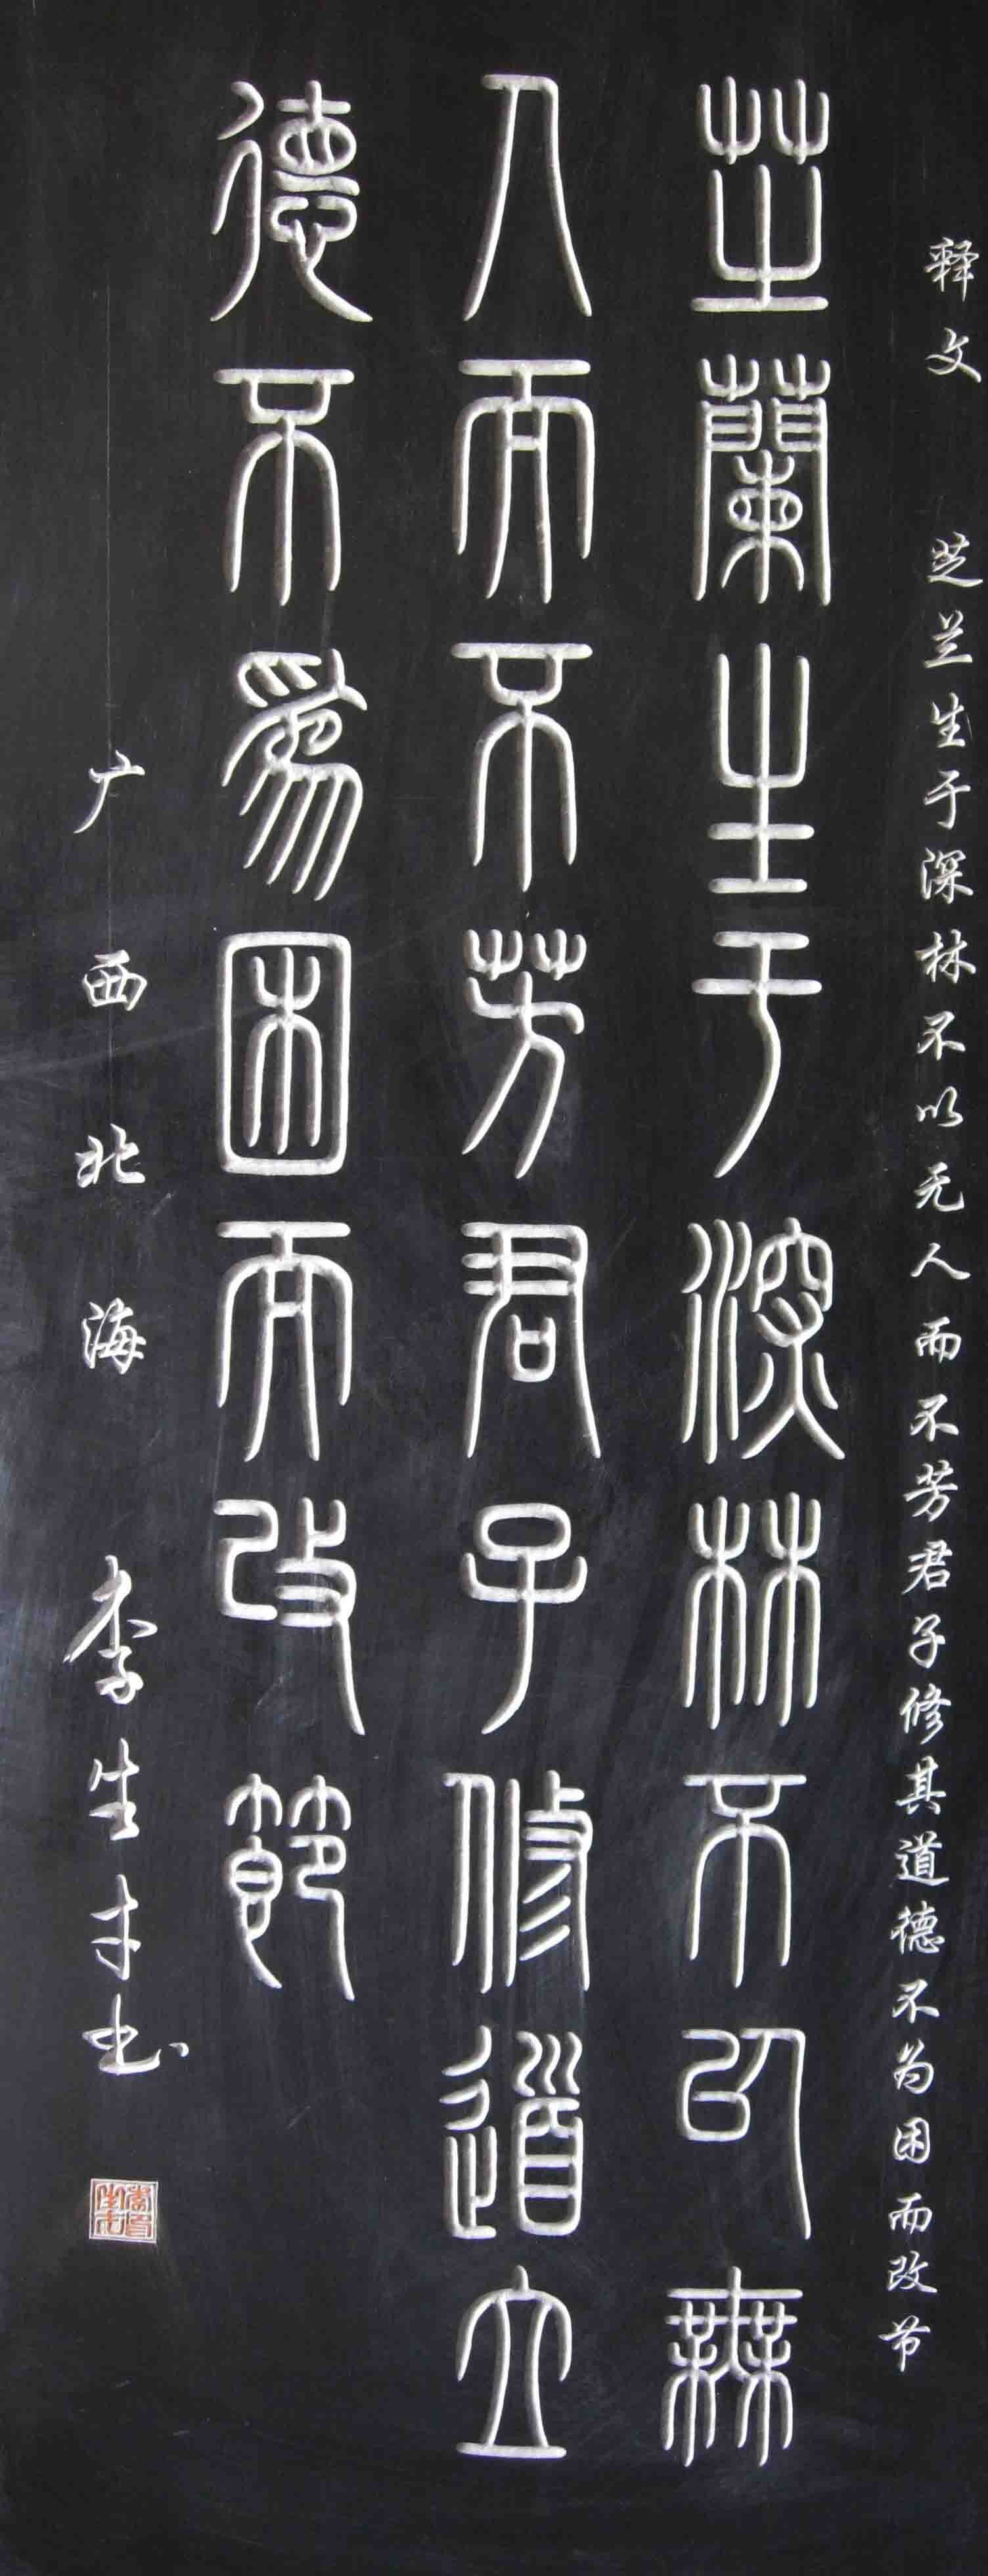 释文 芝兰生于深林不以无人而不芳君子修其道德不为困而改节
芝蘭生于深林不以無
人而不芳君子修道立
德不為困而改節
广西北海 李生才书